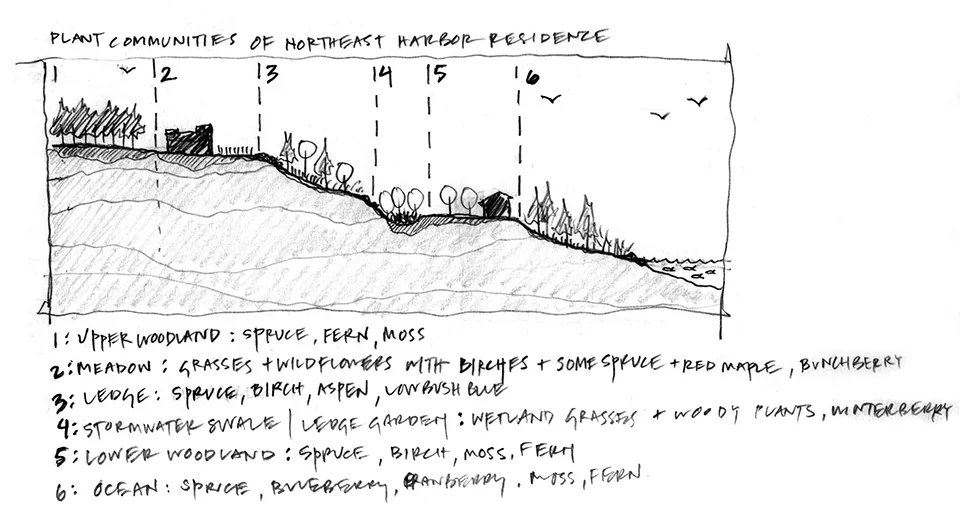 PLANT COMMUNITIES OF NORTHEAST HARBOR RESIDENCE
1 2 3 4 5 6
1: UPPER WOODLAND : SPRUCE, FERN, MOSS
2: MEADOW : GRASSES + WILDFLOWERS WITH BIRCHES + SOME SPRUCE + RED MAPLE, BUNCHBERRY
3: LEDGE : SPRUCE, BIRCH, ASPEN, LOWBUSH BLUE
4: STORMWATER SWALE | LEDGE GARDEN : WETLAND GRASSES + WOODY PLANTS, WINTERBERRY
5: LOWER WOODLAND : SPRUCE, BIRCH, MOSS, FERN
6: OCEAN : SPRUCE, BLUEBERRY, CRANBERRY, MOSS, FERN